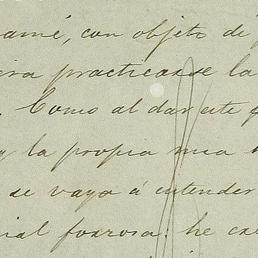 amé, con objeto de
era practicarse la
. Como al dar este
y la propia mia
se vaya á entender
ial forzosa: he